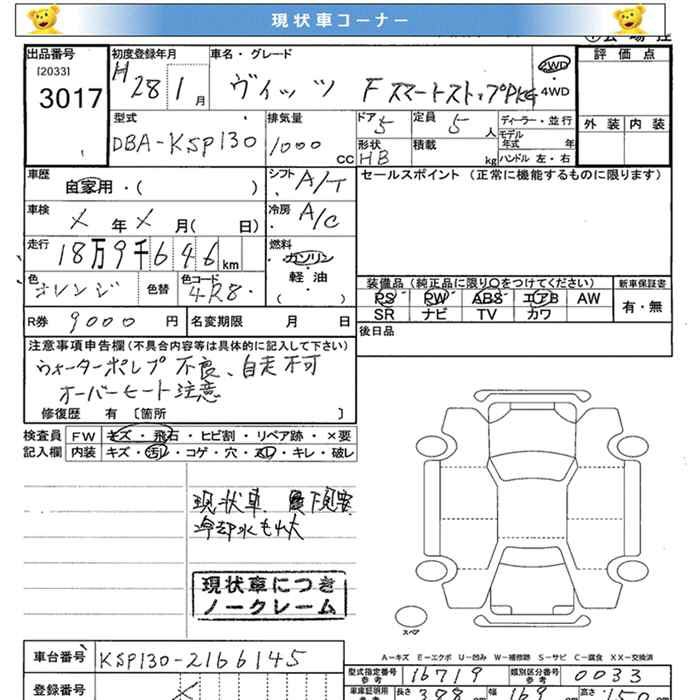 現状車コーナー
出品番号
[2033]
3017
初度登録年月
H28 1月
車名・グレード
ヴィッツ F スマートストップPKG
2WD
4WD
評価点
外装 内装
型式
DBA-KSP130
排気量
1000 CC
ドア 5
形状 HB
定員 5人
積載 kg
ディーラー・並行
モデル年式 年
ハンドル 左・右
車歴
自家用・( )
シフト A/T
セールスポイント(正常に機能するものに限ります)
車検
X年X月( 日)
冷房 A/C
走行
18万9千646km
燃料
ガソリン
軽油
( )
色 オレンジ
色替
色コード 4R8
装備品(純正品に限り○をつけてください)
PS PW ABS エアB AW
SR ナビ TV カワ
新車保証書
有・無
R券 9000円
名変期限 月 日
後日品
注意事項申告欄(不具合内容等は具体的に記入して下さい)
ウォーターポンプ不良、自走不可
オーバーヒート注意
修復歴 有 〔箇所 〕
検査員
記入欄
FW キズ・飛石・ヒビ割・リペア跡・×要
内装 キズ・汚レ・コゲ・穴・スレ・キレ・破レ
現状車
冷却水も
現状車につき
ノークレーム
スペア
A-キズ E-エクボ U-凹み W-補修跡 S-サビ C-腐食 XX-交換済
車台番号 KSP130-2166145
型式指定番号 参考 16719
類別区分番号 参考 0033
登録番号
車庫証明用 参考
長さ 388
幅 169
高さ 150